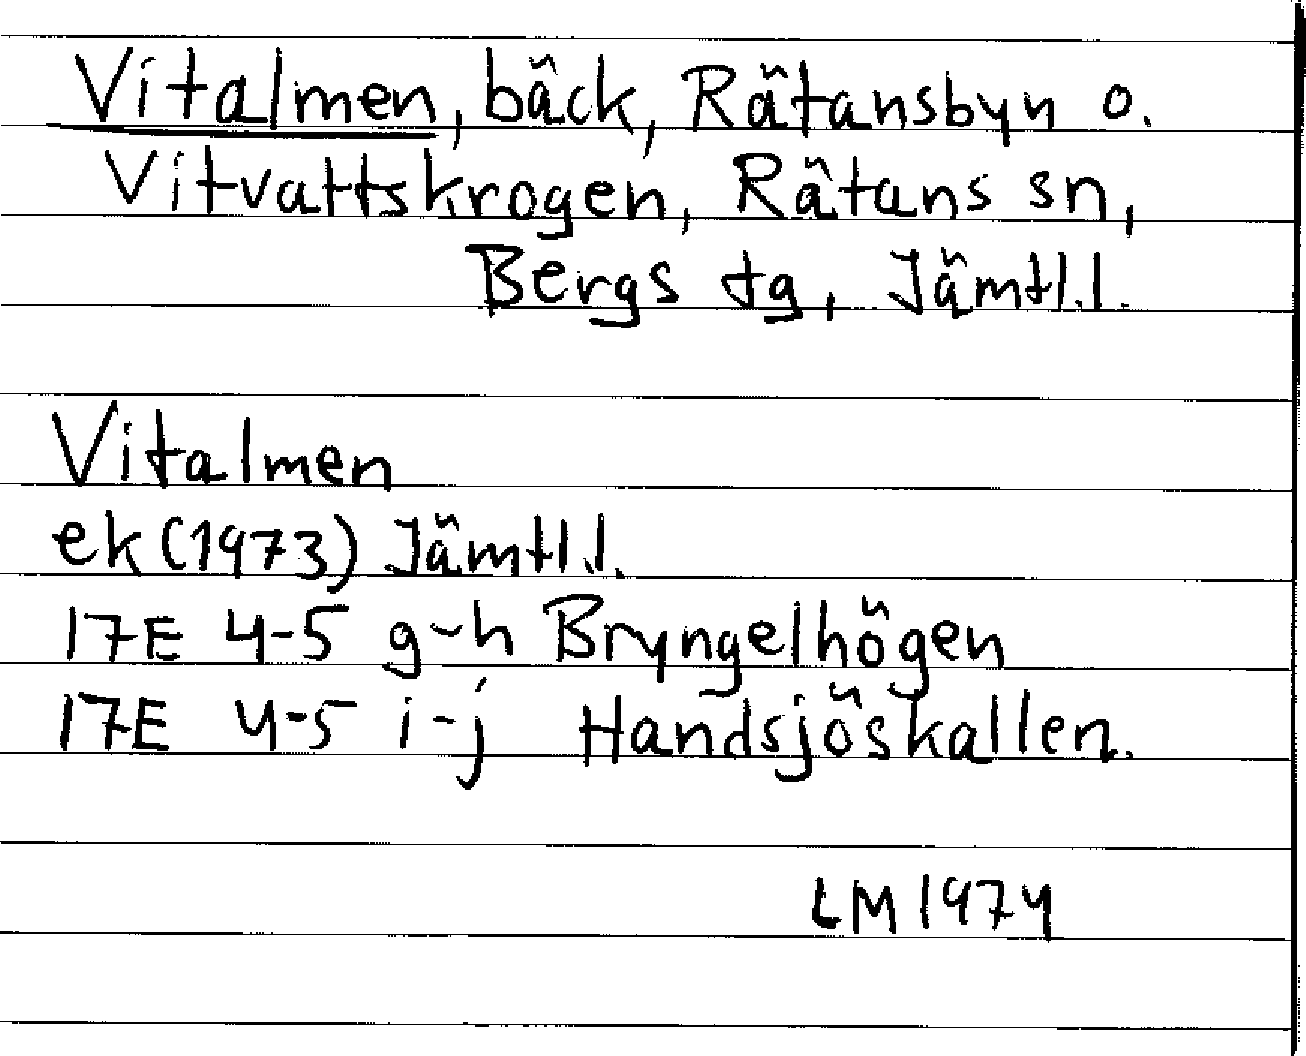 Vitalmen, bäck, Rätansbyn o.
Vitvattskrogen, Rätans sn,
Bergs tg, Jämtl.l.
Vitalmen
ek (1973) Jämtl.l.
17E 4-5 g-h Bryngelhögen
17E 4-5 i-j Handsjöskallen.
LM 1974